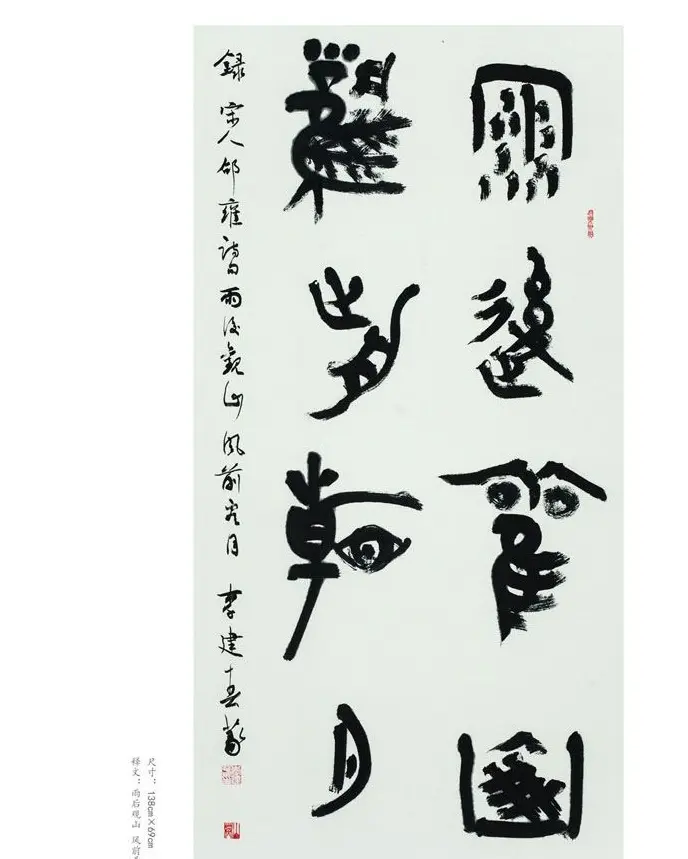 雨後觀山
風前看月
錄宋人邵雍詩雨後觀山風前看月 李建春篆
尺寸：138cm×69cm
释文：雨后观山 风前